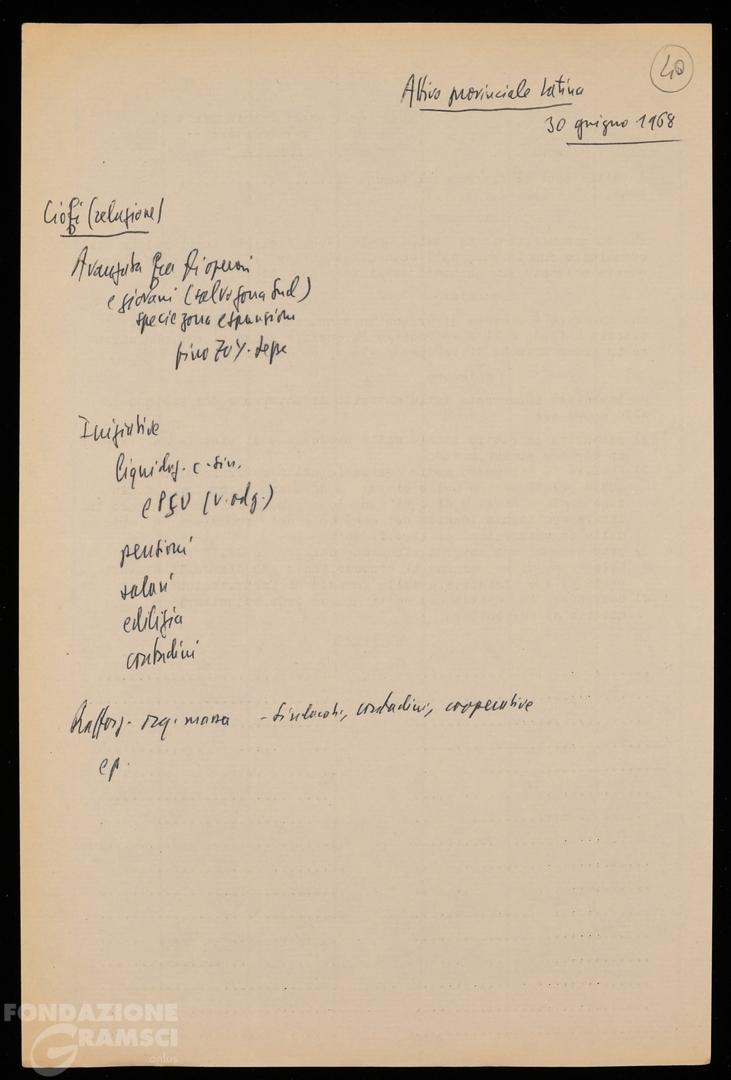 40
Attivo provinciale Latina
30 giugno 1968
Ciofi (relazione)
Avanzata fra operai
e giovani (salvo zona Sud)
specie zona espansione
fino 70%
Iniziative
liquidaz. c. sin.
e PSU (v. odg.)
pensioni
salari
edilizia
contadini
Rafforz. org. massa - Sindacati, contadini, cooperative
e p.
FONDAZIONE
GRAMSCI
onlus